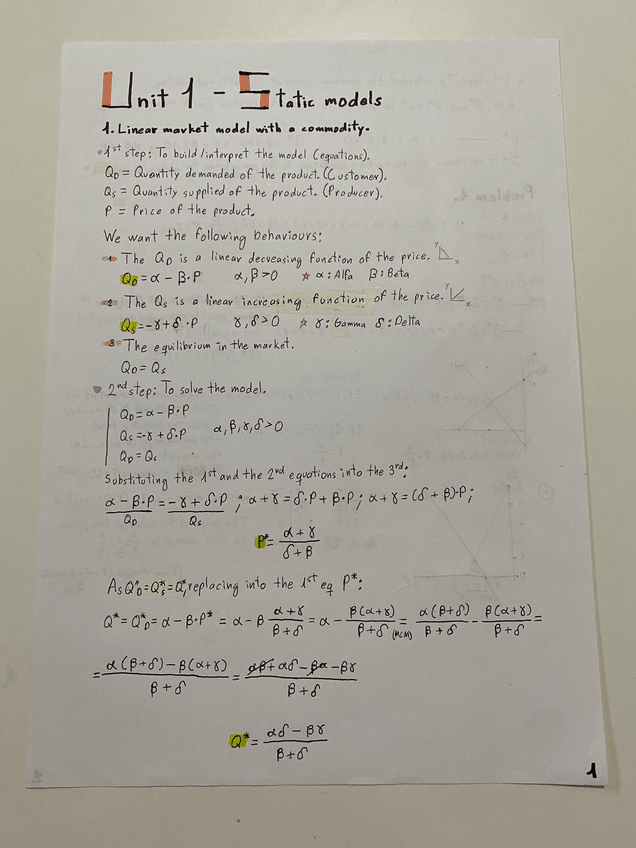 Unit 1 - Static models
1. Linear market model with a commodity.
• 1st step: To build/interpret the model (equations).
QD = Quantity demanded of the product. (Customer).
Qs = Quantity supplied of the product. (Producer).
P = Price of the product.
We want the following behaviours:
1 The QD is a linear decreasing function of the price. y x
QD = α - β·P α, β > 0 ☆ α: Alfa β: Beta
2 The Qs is a linear increasing function of the price. y x
Qs = -γ + δ·P γ, δ > 0 ☆ γ: Gamma δ: Delta
3 The equilibrium in the market.
QD = Qs
• 2nd step: To solve the model.
QD = α - β·P
Qs = -γ + δ·P α, β, γ, δ > 0
QD = Qs
Substituting the 1st and the 2nd equations into the 3rd:
α - β·P = -γ + δ·P ; α + γ = δ·P + β·P ; α + γ = (δ + β)·P ;
QD Qs
P* = (α + γ)/(δ + β)
As Q*D = Q*s = Q*, replacing into the 1st eq P*:
Q* = Q*D = α - β·P* = α - β (α + γ)/(β + δ) = α - β(α + γ)/(β + δ) (MCM) = α(β + δ)/(β + δ) - β(α + γ)/(β + δ) =
= (α(β + δ) - β(α + γ))/(β + δ) = (αβ + αδ - βα - βγ)/(β + δ)
Q* = (αδ - βγ)/(β + δ)
1
2
Problem 1.